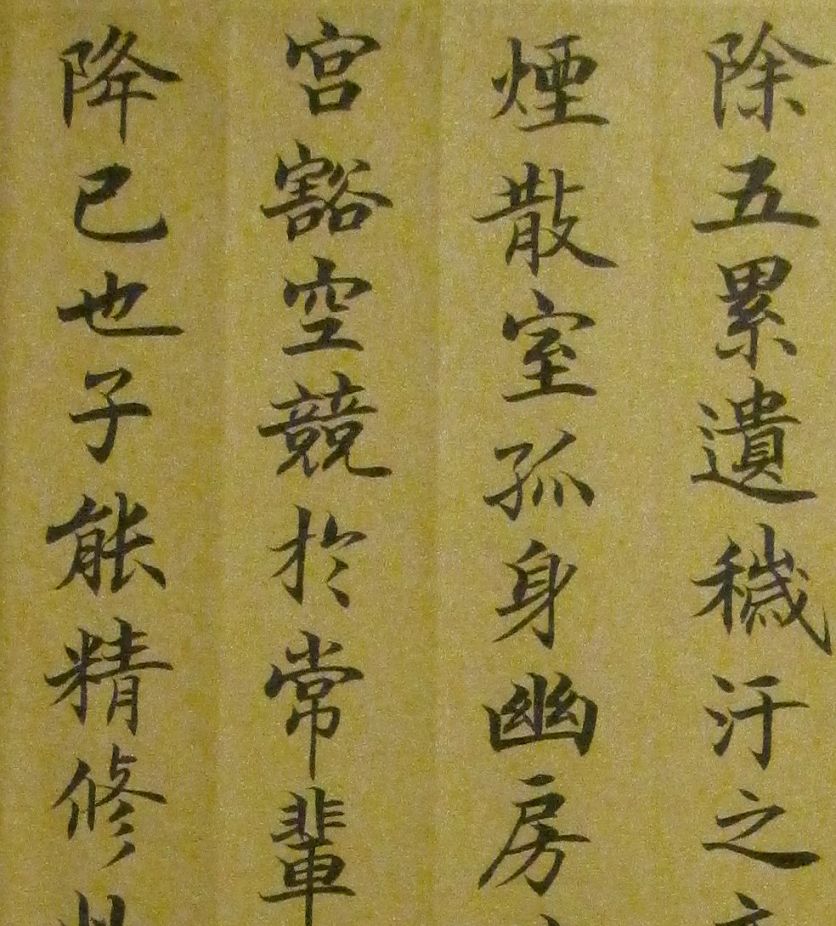 除五累遺穢汙之
煙散室孤身幽房
宮豁空競於常輩
降已也子能精修